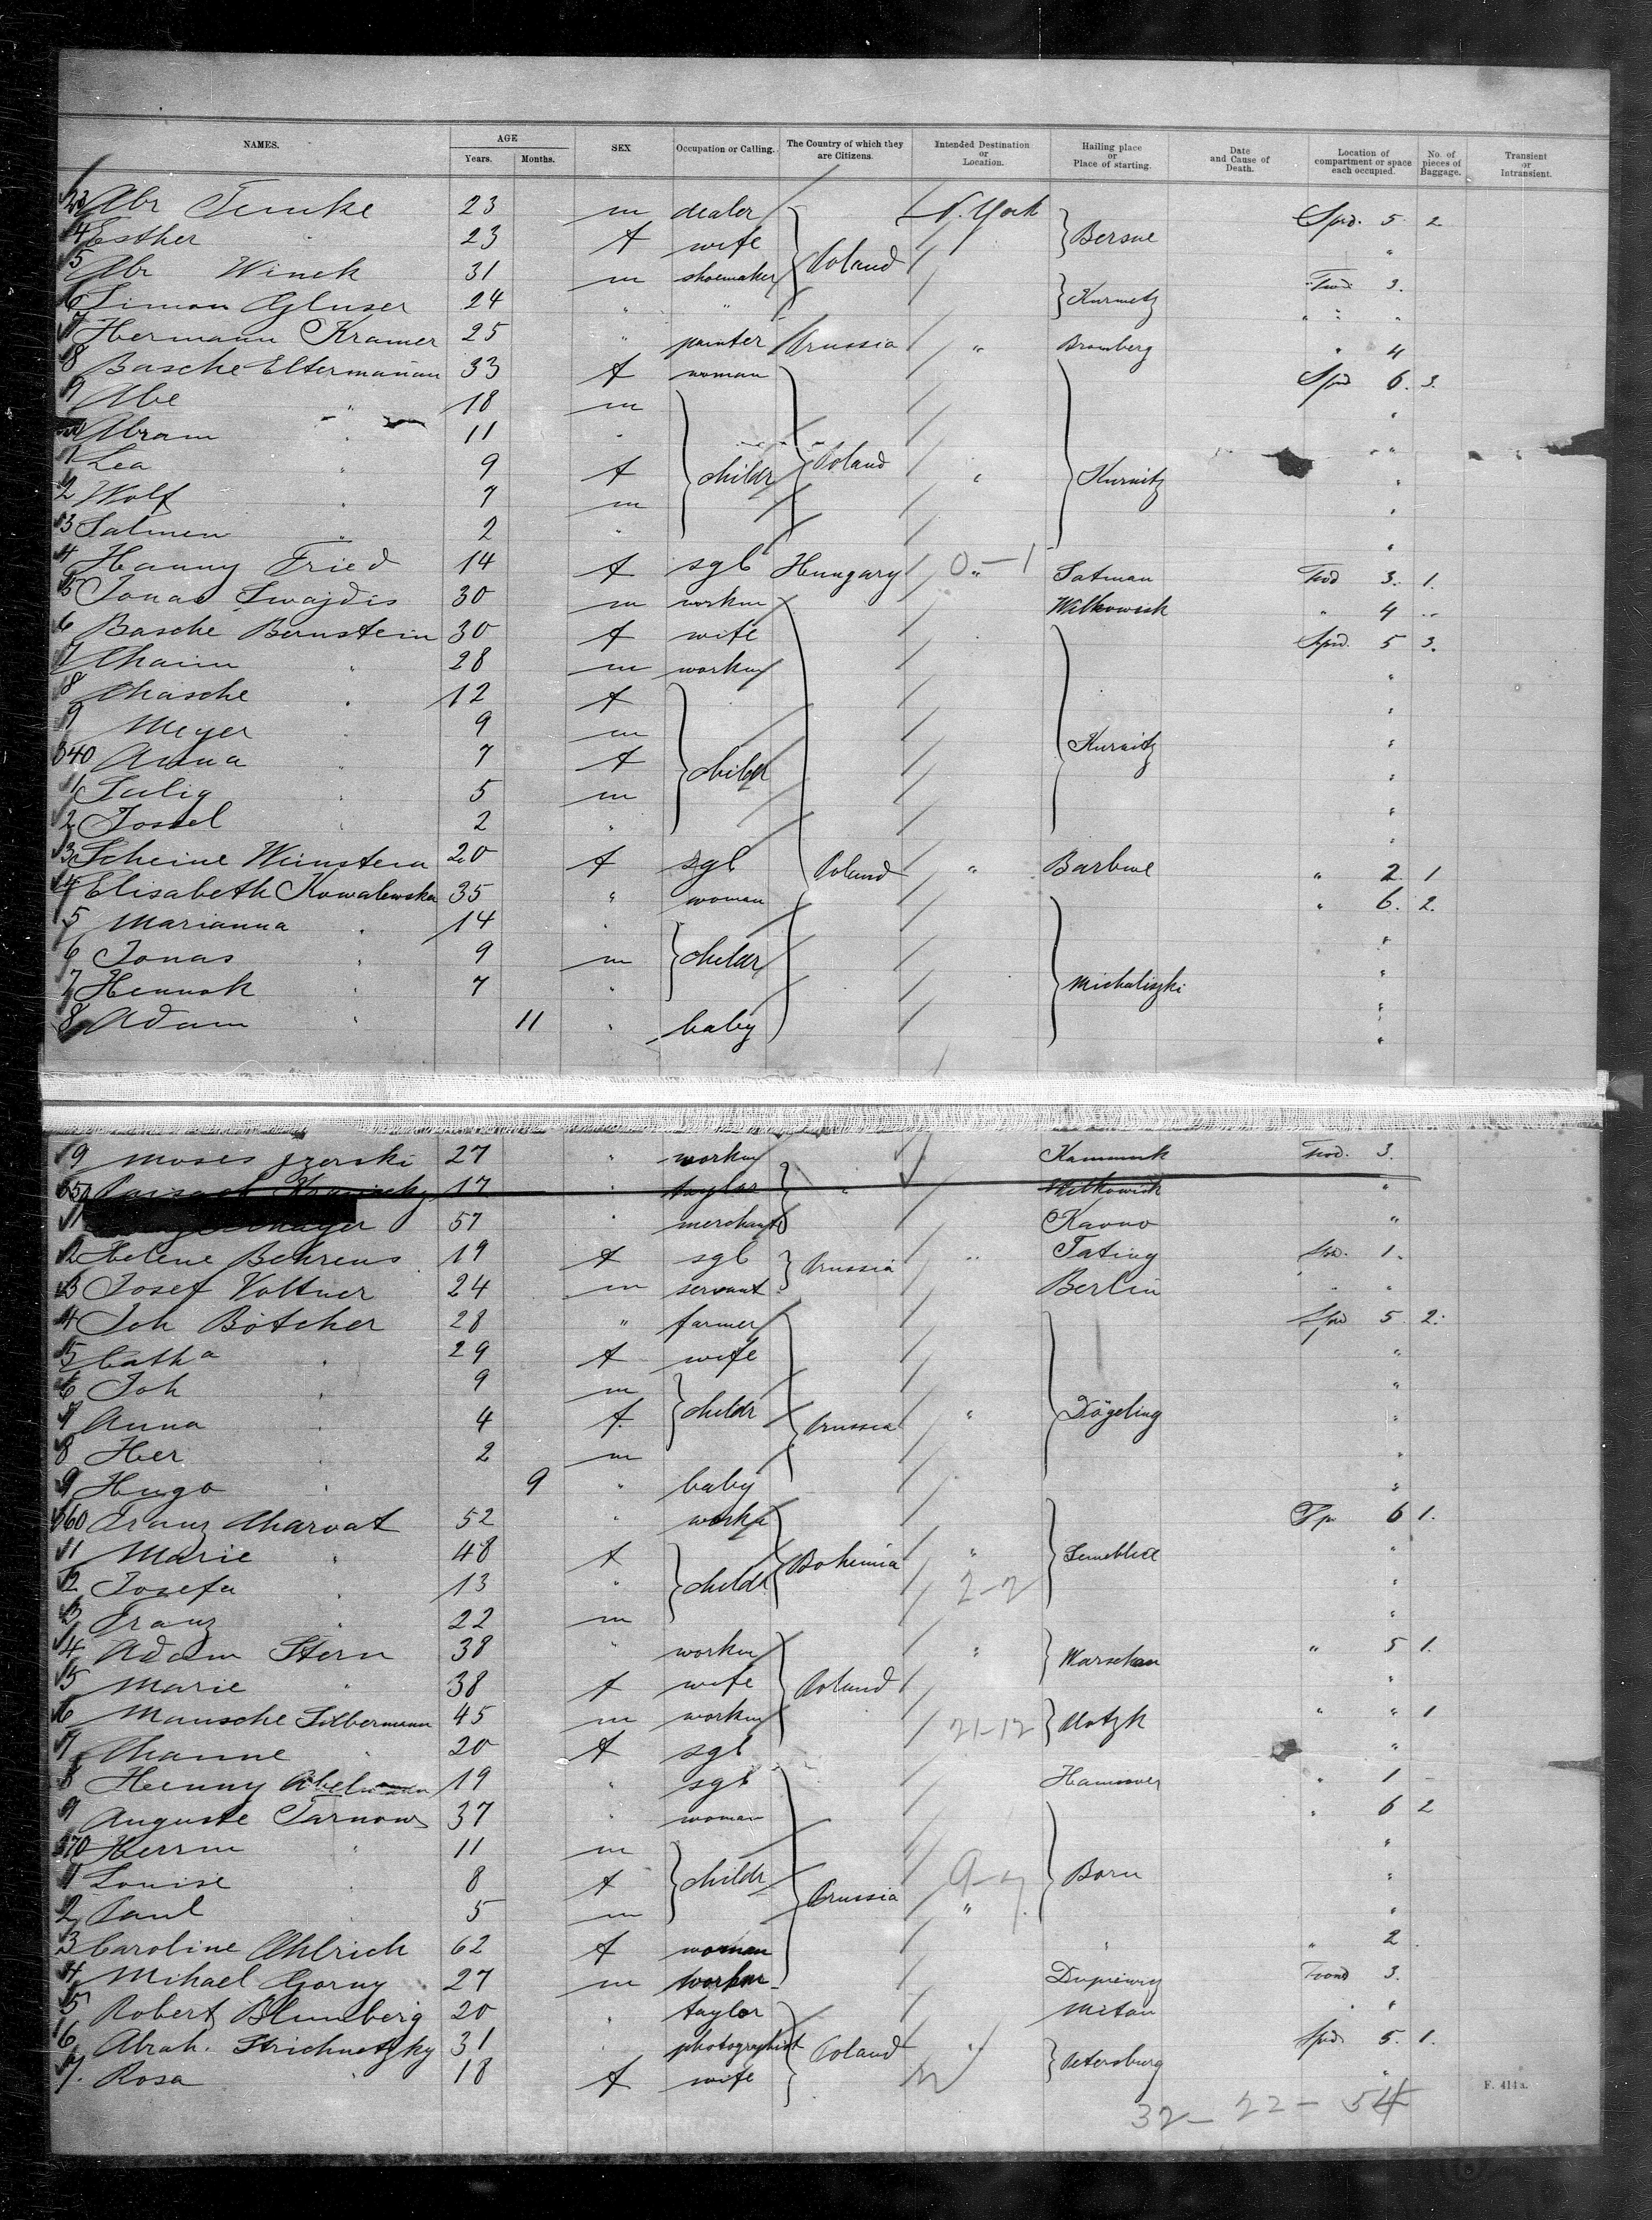 NAMES. AGE Years. Months. SEX Occupation or Calling. The Country of which they are Citizens. Intended Destination or Location. Hailing place or Place of starting. Date and Cause of Death. Location of compartment or space each occupied. No. of pieces of Baggage. Transient or Intransient.
23 Abr Temke 23 m dealer N. York Spd. 5 2
4 Esther " 23 f wife } Bersne "
5 Abr Winek 31 m shoemaker } Poland 3.
6 Simon Gluser 24 " " } Kurnitz " " "
7 Hermann Kramer 25 " painter Prussia " Bromberg " 4
8 Basche Eltermann 33 f woman Spd 6. 3.
9 Abe " 18 m "
Abram " 11 " "
1 Lea " 9 f } childr } Poland " } Kurnitz "
2 Wolf " 7 m "
3 Salmen " 2 " "
4 Hanny Fried 14 f sgl Hungary " 0-1 Satmau 3. 1.
5 Jonas Swajdis 30 m workm Wilkowisk " 4 "
6 Basche Bernstein 30 f wife Spd. 5 3.
7 Chaim " 28 m workm "
8 Chasche " 12 f "
9 Meyer " 9 m "
340 Anna " 7 f } childr } Kurnitz "
1 Selig " 5 m "
2 Jossel " 2 " "
3 Scheine Weinstein 20 f sgl } Poland " Barbwe " 2 1
4 Elisabeth Kowalewska 35 " woman " 6. 2.
5 Marianna " 14 " "
6 Jonas " 9 m } childr "
7 Hennoh " 7 " } Michaliszki "
8 Adam " 11 " baby "
9 Moses 27 " workm 3.
350 17 " taylor " Wilkowisk "
1 57 " merchant Kovno "
2 Helene Behrens 19 f sgl } Prussia " Tating 1.
3 Josef Voltner 24 m servant Berlin " "
4 Joh Bötcher 28 " farmer Spd 5 2.
5 Catha " 29 f wife "
6 Joh " 9 m "
7 Anna " 4 f. } childr } Prussia " } Dögeling "
8 Her " 2 m "
9 Hugo " 9 " baby "
360 Franz Charvat 52 " workm Sp 6 1.
1 Marie " 48 f } Bohemia " "
2 Josefa " 13 " } childr 2-2 "
3 Franz " 22 m "
4 Adam Stern 38 " workm " } Warschau " 5 1.
5 Marie " 38 f wife } Poland "
6 Mausche Silbermann 45 m workm 21-12 } Plotzk " " 1
7 Channe " 20 f sgl "
8 Henny Abelmann 19 " sgl Hannover " 1 -
9 Auguste Tarnow 37 " woman " 6 2
370 Herrm " 11 m "
1 Louise " 8 f } childr 9-7 } Born "
2 Paul " 5 m } Prussia " "
3 Caroline Ahlrich 62 f woman " " 2
4 Mihael Gorny 27 m workm 3.
5 Robert Blumberg 20 " taylor Mitau " "
6 Abrah. Strichnetzky 31 " photographist } Poland " Spd 5. 1.
7. Rosa " 18 f wife } Petersburg "
32 - 22 - 54
F. 414a.